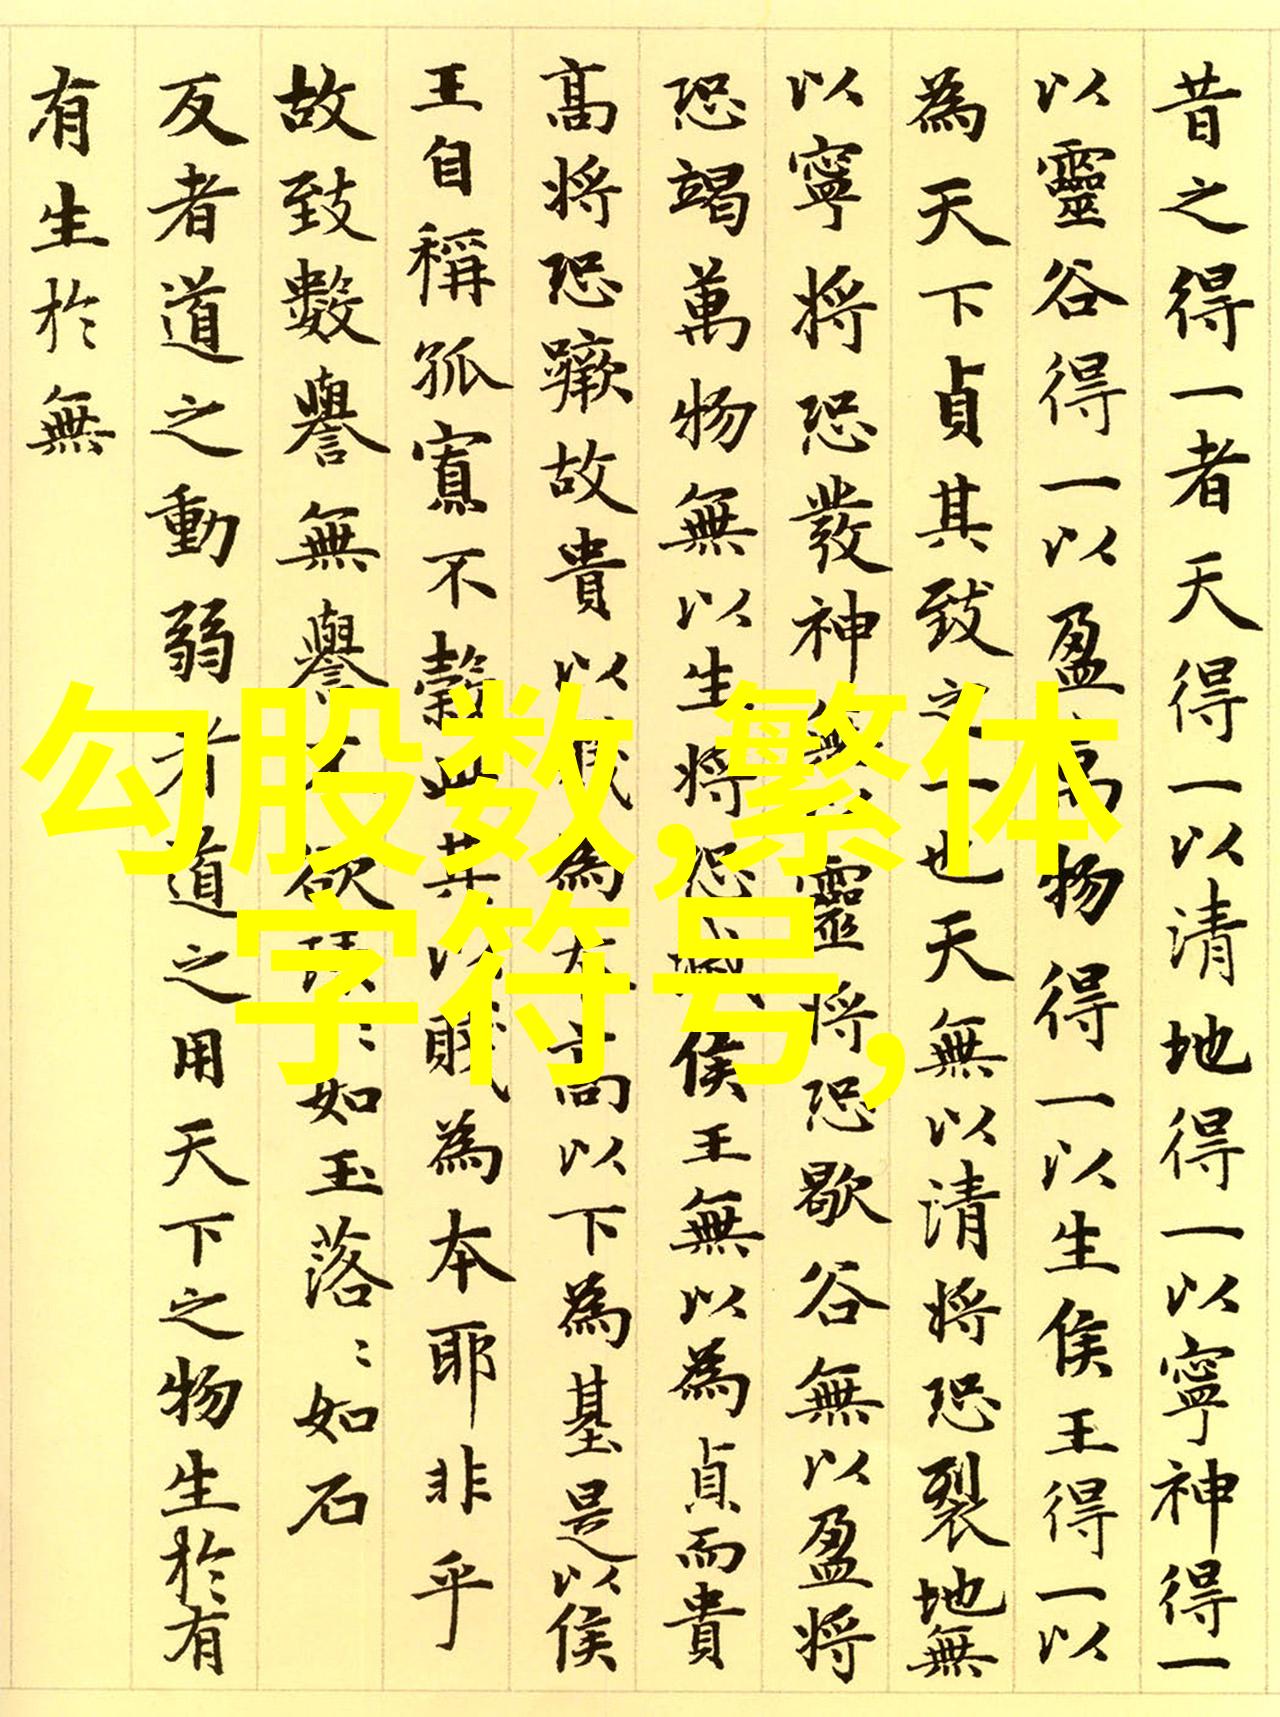 昔之得一者天得一以清地得一以寧神得一
以靈谷得一以盈萬物得一以生侯王得一以
為天下貞其致之一也天無以清將恐裂地無
以寧將恐發神無以靈將恐歇谷無以盈將
恐竭萬物無以生將恐滅侯王無以為貞而貴
高將恐蹶故貴以賤為本高以下為基是以侯
王自稱孤寡不穀此其以賤為本耶非乎
故致數譽無譽不欲琭:如玉落:如石
反者道之動弱者道之用天下之物生於有
有生於無
勾股数,繁体
字符号,